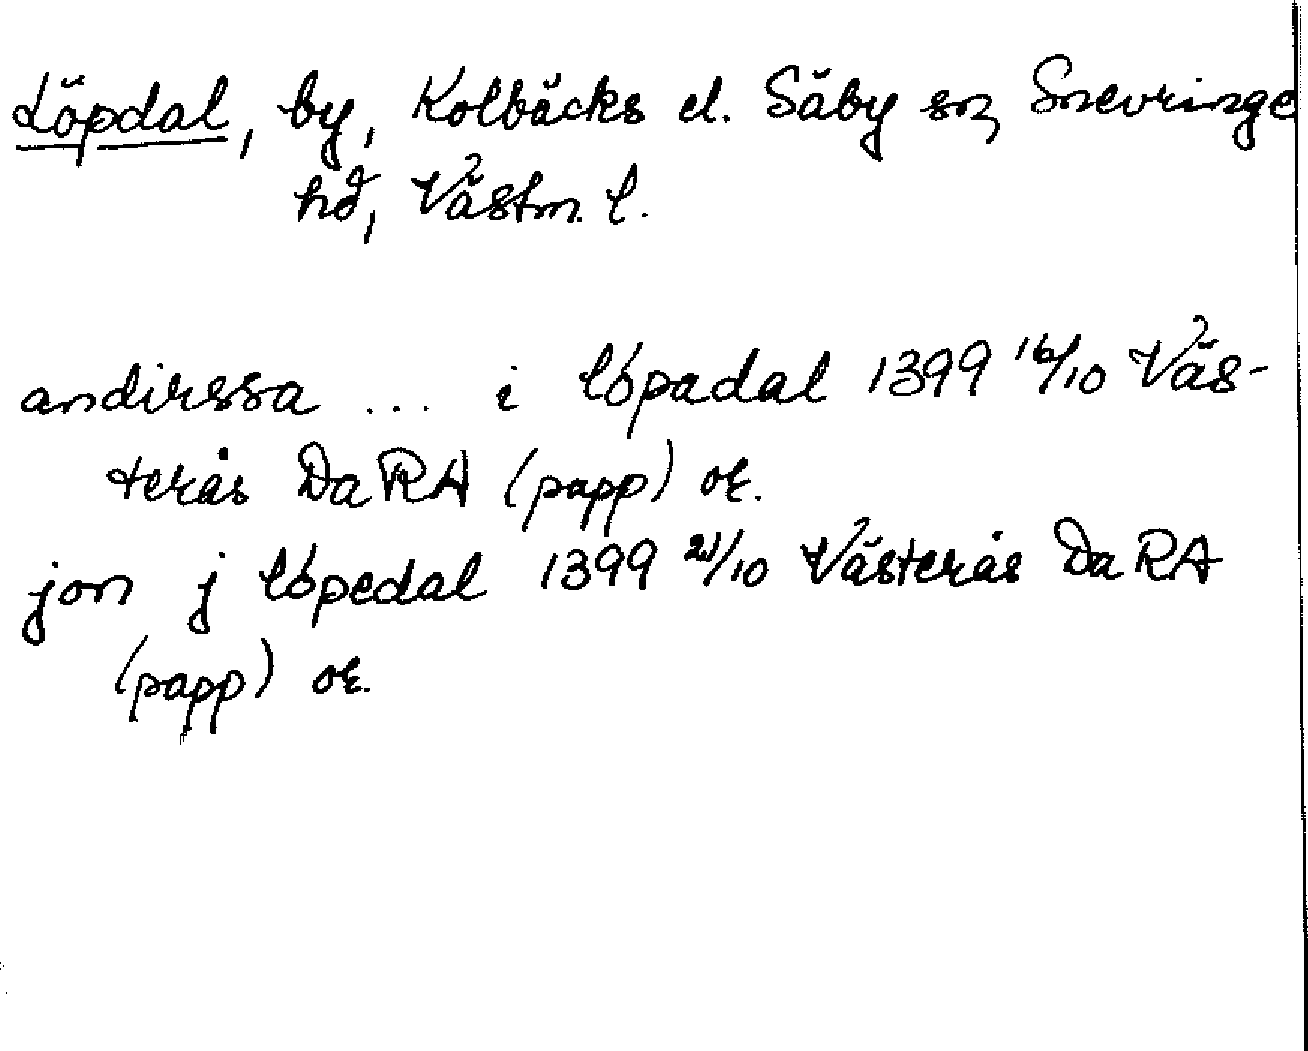 Löpdal, by, Kolbäcks el. Säby sn, Snevringe
hd, Västm. l.
andirssa ... i lópadal 1399 16/10 Väs-
terås DaRA (papp) or.
jon j lópedal 1399 21/10 Västerås DaRA
(papp) or.